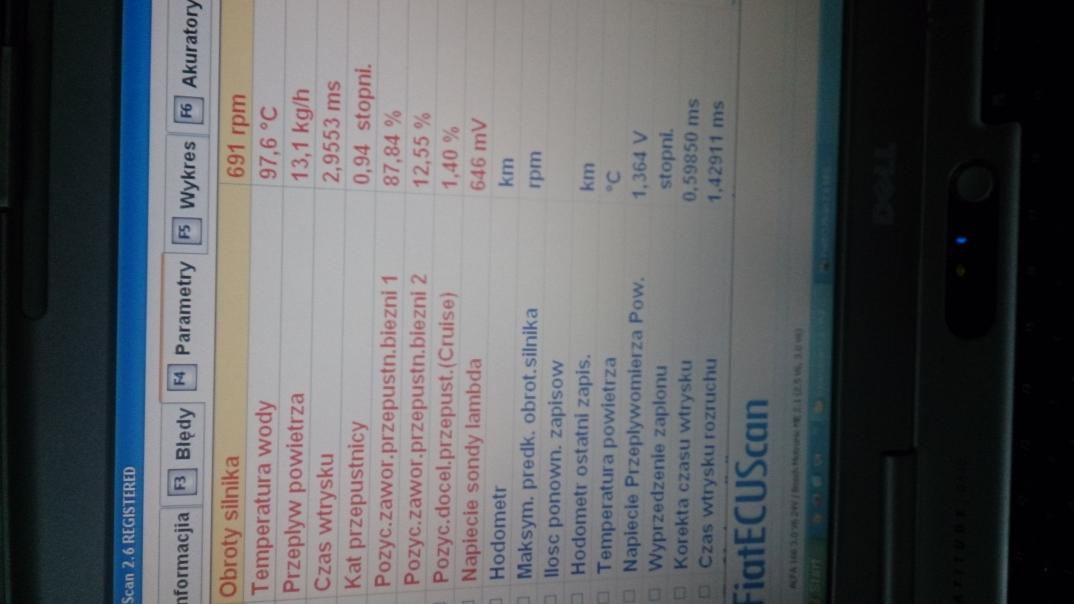 Scan 2.6 REGISTERED
nformacjia F3 Błędy F4 Parametry F5 Wykres F6 Akuratory
Obroty silnika 691 rpm
Temperatura wody 97,6 °C
Przeplyw powietrza 13,1 kg/h
Czas wtrysku 2,9553 ms
Kat przepustnicy 0,94 stopni.
Pozyc.zawor.przepustn.biezni 1 87,84 %
Pozyc.zawor.przepustn.biezni 2 12,55 %
Pozyc.docel.przepust.(Cruise) 1,40 %
Napiecie sondy lambda 646 mV
Hodometr km
Maksym. predk. obrot.silnika rpm
Ilosc ponown. zapisow
Hodometr ostatni zapis. km
Temperatura powietrza °C
Napiecie Przeplywomierza Pow. 1,364 V
Wyprzedzenie zaplonu stopni.
Korekta czasu wtrysku 0,59850 ms
Czas wtrysku rozruchu 1,42911 ms
FiatECUScan
DELL